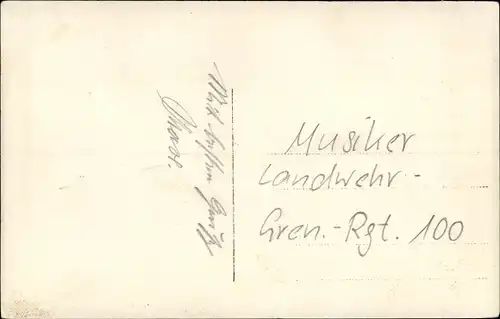 Mit besten Gruß
Musiker
Landwehr-
Gren.-Rgt. 100